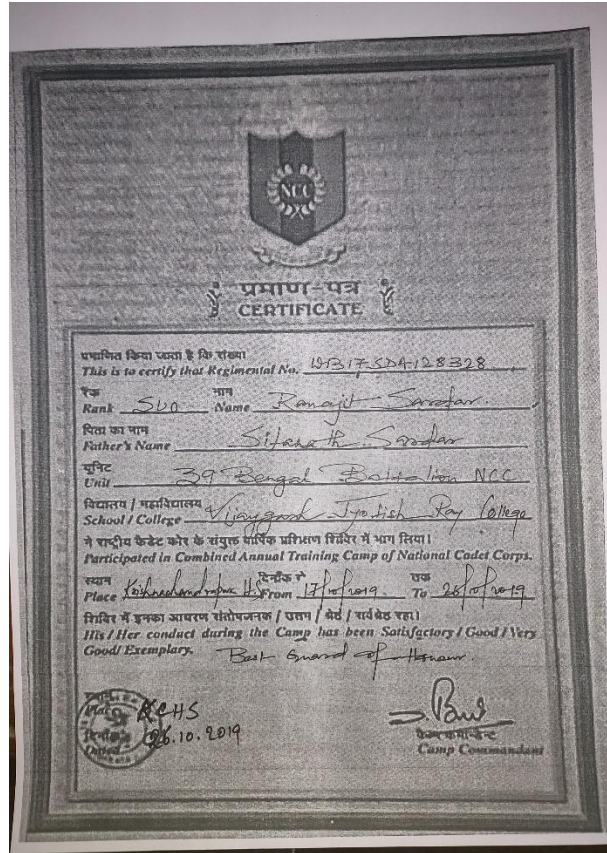 NCC
प्रमाण-पत्र
CERTIFICATE
प्रमाणित किया जाता है कि संख्या
This is to certify that Regimental No. WB17SDA128328
रैंक नाम
Rank SUO Name Ranajit Sardar.
पिता का नाम
Father's Name Sitanath Sardar
यूनिट
Unit 39 Bengal Battalion NCC
विद्यालय / महाविद्यालय
School / College Vijaygarh Jyotish Ray College
ने राष्ट्रीय कैडेट कोर के संयुक्त वार्षिक प्रशिक्षण शिविर में भाग लिया।
Participated in Combined Annual Training Camp of National Cadet Corps.
स्थान दिनाँक से तक
Place Krishnachandrapur H.S From 17/10/2019. To 26/10/2019
शिविर में इनका आचरण संतोषजनक / उत्तम / श्रेष्ठ / सर्वश्रेष्ठ रहा।
His / Her conduct during the Camp has been Satisfactory / Good / Very
Good / Exemplary. Best Guard of Honour.
Place KCHS
दिनाँक
Dated 26.10.2019
कैम्प कमान्डेन्ट
Camp Commandant